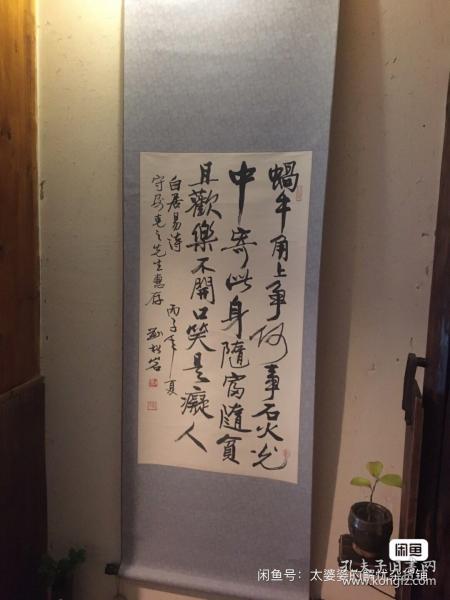 蝸牛角上爭何事石火光
中寄此身隨富隨貧
且歡樂不開口笑是癡人
白居易诗 丙子年夏
先生惠存
闲鱼
孔夫子旧书网
www.kongfz.com
闲鱼号：太婆婆的解忧杂货铺